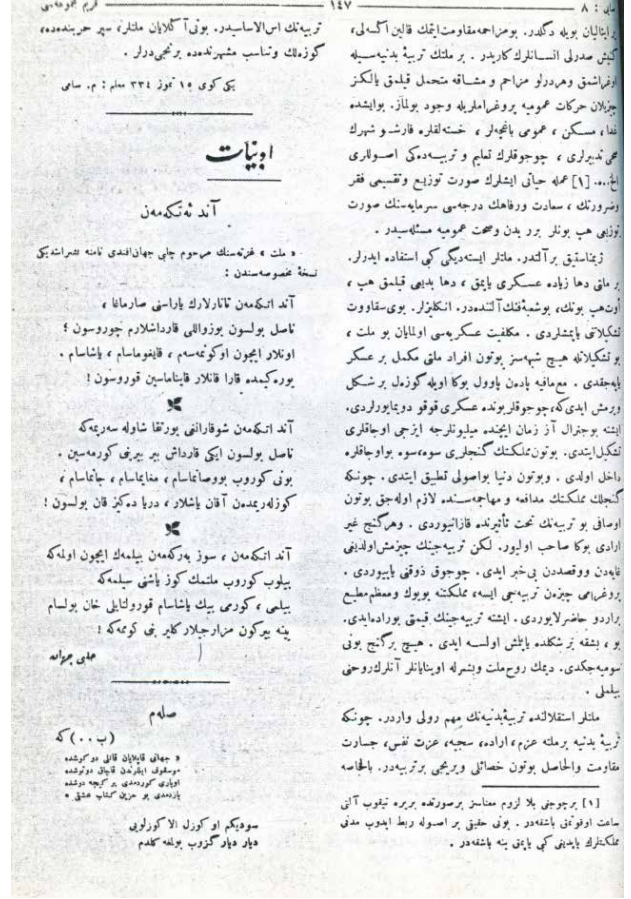 صایی : ٨ ١٤٧ قریم مجموعه‌سی
برایتالیان بویله دکلدر . بومزاحمه‌مقاومت‌ایتمك قالین اكسه‌لی،
كنیش صدرلی انسانلرك كاریدر . بر ملتك تربیهٔ بدنیه‌سیله
اوغراشمق وهردرلو مزاحم و مشاقه متحمل قیلمق یالكز
جریان حركات عمومیه پروغراملریله وجود بولماز. بوایشده
غدا، مسكن ، عمومی باغچه‌لر ، خسته‌لقلره قارشو شهرك
صحی تدبیرلری ، چوجوقلرك تعلیم و تربیه‌ده‌كی اصوللری
الخ.... [١] عمله حیاتی ایشلرك صورت توزیع وتقسیمی فقر
وضرورتك ، سعادت ورفاهك درجه‌سی سرمایه‌نك صورت
توزیعی هپ بونلر برر بدن وصحت عمومیه مسئله‌سیدر .
ژیمناستیق بر آلتدر. ملتلر ایسته‌دیكی كبی استفاده ایدرلر.
بر ملتی دها زیاده عسكری یاپمق ، دها بدیعی قیلمق هپ ،
اوت‌هپ بونك، بوشعبهٔ‌فنك آلتنده‌در. انكلیزلر. بوی‌سقاووت
تشكیلاتی یاپمشلردی . مكلفیت عسكریه‌سی اولمایان بو ملت ،
بو تشكیلاتله هیچ شبهه‌سز بوتون افراد ملتی مكمل بر عسكر
یاپه‌جقدی . مع‌مافیه بادەن پاوول بوكا اویله كوزەل بر شكل
ویرمش ایدی‌كه،چوجوقلربونده عسكری قوقو دویمایورلردی.
ایشته بوجنرال آز زمان ایچنده میلیونلرجه ایزجی اوجاقلری
تشكیل‌ایتدی. بوتون‌مملكتنك كنجلری سوه،سوه بواوجاقلره
داخل اولدی . وبوتون دنیا بواصولی تطبیق ایتدی . چونكه
كنجلك مملكتك مدافعه و مهاجمه‌سنده لازم اوله‌جق بوتون
اوصافی بو تربیه‌نك تحت تأثیرنده قازانیوردی . وهركنج غیر
ارادی بوكا صاحب اولیور. لكن تربیه‌جینك چیزمش‌اولدیغی
غایه‌دن ووقصددن بی‌خبر ایدی. چوجوق ذوقنی یاپیوردی .
پروغرامی چیزەن تربیه‌جی ایسه، مملكتنه بویوك ومعظم‌مطیع
براردو حاضرلایوردی . ایشته تربیه‌جینك قیمتی بوراده‌ایدی.
بو ، بشقه بر شكلده یاپلش اولسه ایدی . هیچ بركنج بونی
سومیه‌جكدی. دیمك روح‌ملت وبشرله اوینایانلر آنلرك‌روحنی
بیلملی .
ملتلر استقلالنده تربیهٔ‌بدنیه‌نك مهم رولی واردر. چونكه
تربیهٔ بدنیه برملته عزم، اراده، سجیه، عزت نفس، جسارت
مقاومت والحاصل بوتون خصائلی ویریجی برتربیه‌در. بالخاصه
[١] برچوجغی بلا لزوم معناسز برصورتده بریره تیقوب آلتی
ساعت اوقوتمق باشقه‌در . بونی حقیقی بر اصوله ربط ایدوب مدنی
مملكتلرك یاپدیغی كبی یاپمق ینه باشقه‌در .
تربیه‌نك اس‌الاساسیدر. بونی آكلایان ملتلر، سیر حربنده‌ده،
كوزەلك وتناسب مشهرنده‌ده برنجی‌درلر .
یكی كوی ١٥ تموز ٣٣٤ معلم : م. سامی
ادبیات
آند ئەتكەمەن
« ملت » غزته‌سنك مرحوم چلبی جهان‌افندی نامنه نشرایتدیكی
نسخهٔ مخصوصه‌سندن :
آند ایتكه‌مەن تاتارلارك یاراسنی صارماغا ،
ناصل بولسون بوزواللی قارداشلارم چوروسون ؛
اونلار ایچون اوكونمه‌سەم ، قایغوماسام ، یاشاسام .
یوره‌كمده قارا قانلار قایناماسین قوروسون !
آند ایتكه‌مەن شوقارانغی یورتقا شاوله سه‌ریمه‌كه
ناصل بولسون ایكی قارداش بر بیرنی كورمه‌سین .
بونی كوروب بووصانماسام ، مغایماسام ، جانماسام ،
كوزلەریمدەن آقان یاشلار ، دریا دەكز قان بولسون !
آند ایتكه‌مەن ، سوز بەركه‌مەن بیلمەك ایچون اولمه‌كه
بیلوب كوروب ملتمك كوز یاشنی سیلمه‌كه
بیلمی ، كورمی بیك یاشاسام قورولتایلی خان بولسام
ینه بیركون مزارجیلار كلیر بنی كوممه‌كه !
چلبی جهان
صله‌م
(ب . . ) كه
« جهانی قاپلایان قانلی دوكوشده
یازه‌مدی بو حزین كتاب عشقی »
سودیكم او كوزل الا كوزلویی
دیار دیار گزوب بولمغه كلدم